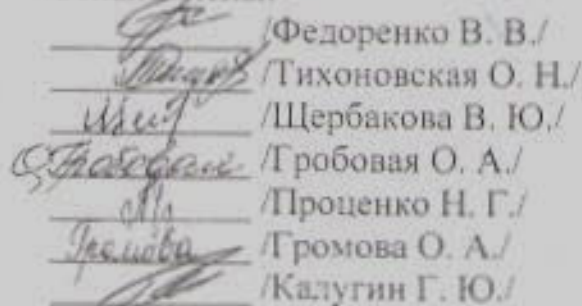 /Федоренко В. В./
/Тихоновская О. Н./
/Щербакова В. Ю./
/Гробовая О. А./
/Проценко Н. Г./
Громова /Громова О. А./
/Калугин Г. Ю./